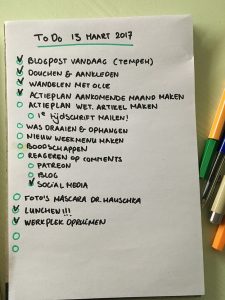 TO DO 13 MAART 2017
BLOGPOST VANDAAG (TEMPEH)
DOUCHEN & AANKLEDEN
WANDELEN MET OLLIE
ACTIEPLAN AANKOMENDE MAAND MAKEN
ACTIEPLAN WET. ARTIKEL MAKEN
1e TIJDSCHRIFT MAILEN!
WAS DRAAIEN & OPHANGEN
NIEUW WEEKMENU MAKEN
BOODSCHAPPEN
REAGEREN OP COMMENTS
PATREON
BLOG
SOCIAL MEDIA
FOTO'S MASCARA DR. HAUSCHKA
LUNCHEN!!!
WERKPLEK OPRUIMEN